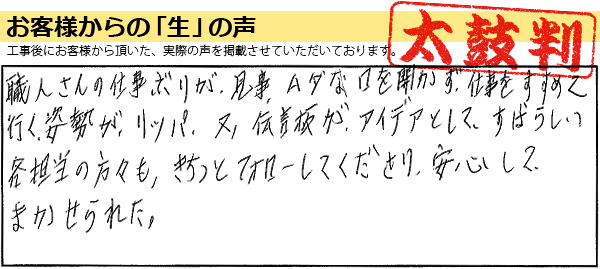 お客様からの「生」の声
太鼓判
工事後にお客様から頂いた、実際の声を掲載させていただいております。
職人さんの仕事ブリが、見事、ムダな口を開かず、仕事をすすめて
行く、姿勢が、リッパ、又、伝言板が、アイデアとして、すばらしい
各担当の方々も、きちっとフォローしてくださり、安心して、
まかせられた。